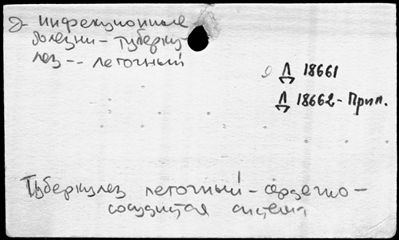 2- Инфекционные
болезни - туберку-
лез -- легочный
Д 18661
Д 18662 - Прил.
Туберкулез легочный - сердечно-
сосудистая система